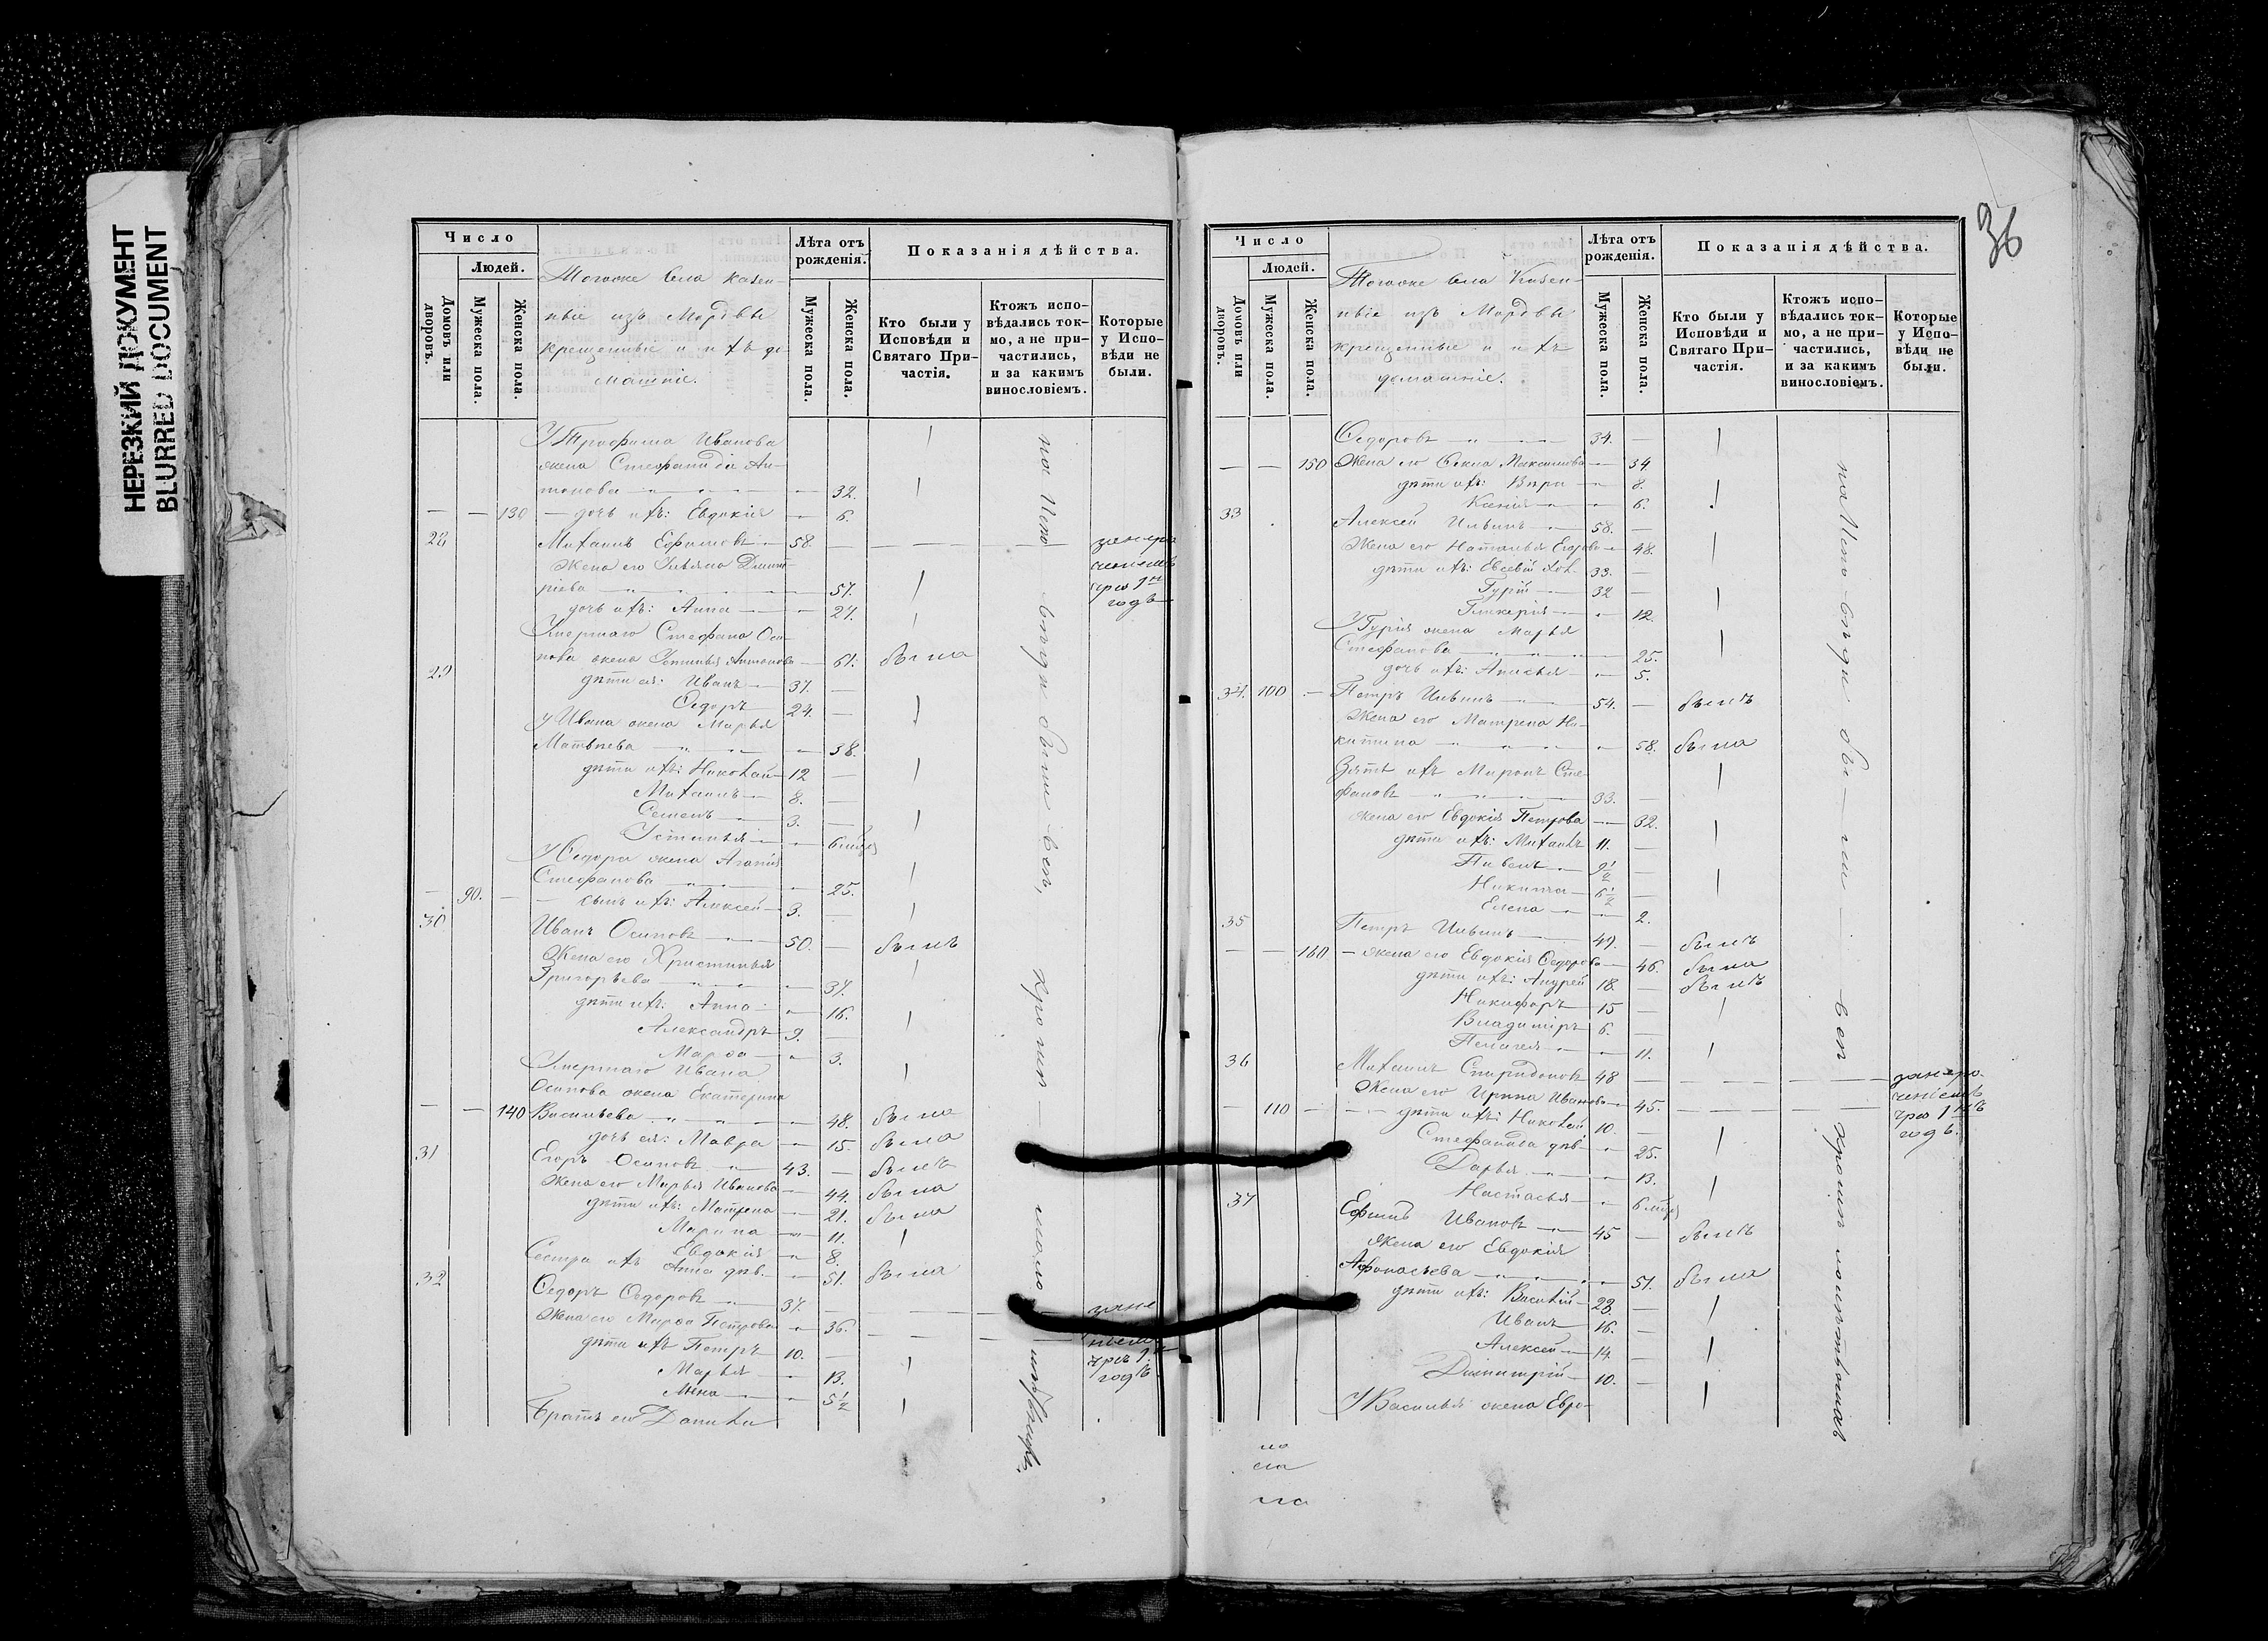 НЕРЕЗКИЙ ДОКУМЕНТ
BLURRED DOCUMENT
Число
Людей.
Домовъ или дворовъ.
Мужеска пола.
Женска пола.
Тогоже села казен-
ные изъ Мордвы
крещенные и ихъ до
машніе.
Лѣта отъ рожденія.
Мужеска пола.
Женска пола.
Показанія дѣйства.
Кто были у Исповѣди и Святаго При-частія.
Ктожъ испо-вѣдались ток-мо, а не при-частились, и за какимъ винословіемъ.
Которые у Испо-вѣди не были.
У Трофима Иванова
жена Стефанида Ан-
тонова 32.
130 дочь ихъ: Евдокія 6.
28 Михаилъ Ефимовъ 58.
Жена его Ульяна Дмит-
ріева 57.
дочь ихъ: Анна 27.
Умершаго Стефана Оси-
пова жена Устинья Антонова 61. была
29 дѣти ея: Иванъ 37.
Ѳедоръ 24.
У Ивана жена Марья
Матвѣева 38.
дѣти ихъ: Николай 12
Михаилъ 8.
Семенъ 3.
Устинья 6 мѣс
У Ѳедора жена Агапія
Стефанова 25.
90. сынъ ихъ: Алексей 3.
30 Иванъ Осиповъ 50. былъ
Жена его Христинья
Григорьева 37.
дѣти ихъ: Анна 16.
Александръ 9.
Марѳа 3.
Умершаго Ивана
Осипова жена Екатерина
140 Васильева 48. была
дочь ея: Мавра 15. была
31 Егоръ Осиповъ 43. былъ
Жена его Марья Иванова 44. была
дѣти ихъ: Матрена 21. была
Марина 11.
Евдокія 8.
Сестра ихъ Анна дѣв. 51. была
32 Ѳедоръ Ѳедоровъ 37.
Жена его Марѳа Петрова 36.
дѣти ихъ Петръ 10.
Марья 13.
Анна 5 1/2
Братъ его Данила
на Испо вѣди были всѣ, кромѣ мало
36
Число
Людей.
Домовъ или дворовъ.
Мужеска пола.
Женска пола.
Тогоже села Казен-
ные изъ Мордвы
крещенные и ихъ
домашніе.
Лѣта отъ рожденія.
Мужеска пола.
Женска пола.
Показанія дѣйства.
Кто были у Исповѣди и Святаго При-частія.
Ктожъ испо-вѣдались ток-мо, а не при-частились, и за какимъ винословіемъ.
Которые у Испо-вѣди не были.
Ѳедоровъ 34.
150 Жена его Ѳекла Максимова 34
дѣти ихъ: Вѣра 8.
Ксенія 6.
33 Алексей Ильинъ 58.
Жена его Наталья Егорова 48.
дѣти ихъ: Евсевій 33.
Гурій 32
Гликерія 12.
У Гурія жена Марья
Стефанова 25.
дочь ихъ: Анисья 5.
34. 100 Петръ Ильинъ 54. былъ
Жена его Матрена Ни-
китина 58. была
Зять ихъ Миронъ Сте-
фановъ 33.
жена его Евдокія Петрова 32.
дѣти ихъ: Михаилъ 11.
Павелъ 9 1/2
Никита 6 1/2
Елена 2.
35 Петръ Ильинъ 49. былъ
160 жена его Евдокія Ѳедорова 46. была
дѣти ихъ: Андрей 18. былъ
Никифоръ 15
Владиміръ 6.
Пелагея 11.
36 Михаилъ Спиридоновъ 48
Жена его Ирина Иванова 45.
110 дѣти ихъ: Николай 10.
Стефанида дѣв. 25.
Дарья 13.
Настасья 6 мѣс
37 Ефимъ Ивановъ 45 былъ
Жена его Евдокія
Афонасьева 51. была
дѣти ихъ: Василій 23.
Иванъ 16.
Алексей 14.
Димитрій 10.
У Василья жена Евро-
на Испо-вѣди бы-ли всѣ кромѣ малолѣтныхъ
ла